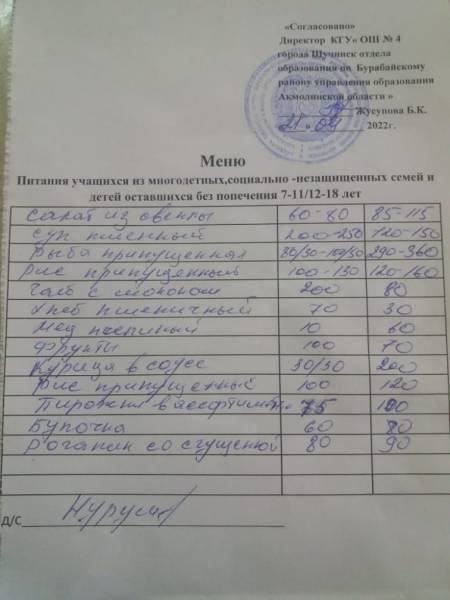 «Согласовано»
Директор КГУ« ОШ № 4
города Щучинск отдела
образования по Бурабайскому
району управления образования
Акмолинской области »
Жусупова Б.К.
21 04 2022г.
Меню
Питания учащихся из многодетных,социально -незащищенных семей и
детей оставшихся без попечения 7-11/12-18 лет
Салат из свеклы 60-80 85-115
Суп пшенный 200-250 120-150
Рыба припущенная 80/50-100/50 290-360
Рис припущенный 100-130 120-160
Чай с молоком 200 80
Хлеб пшеничный 70 30
Мед пчелиный 10 60
Фрукты 100 70
Курица в соусе 30/30 200
Рис припущенный 100 120
Пирожки в ассортименте 75 100
Булочка 60 80
Рогалик со сгущенкой 80 90
д/с